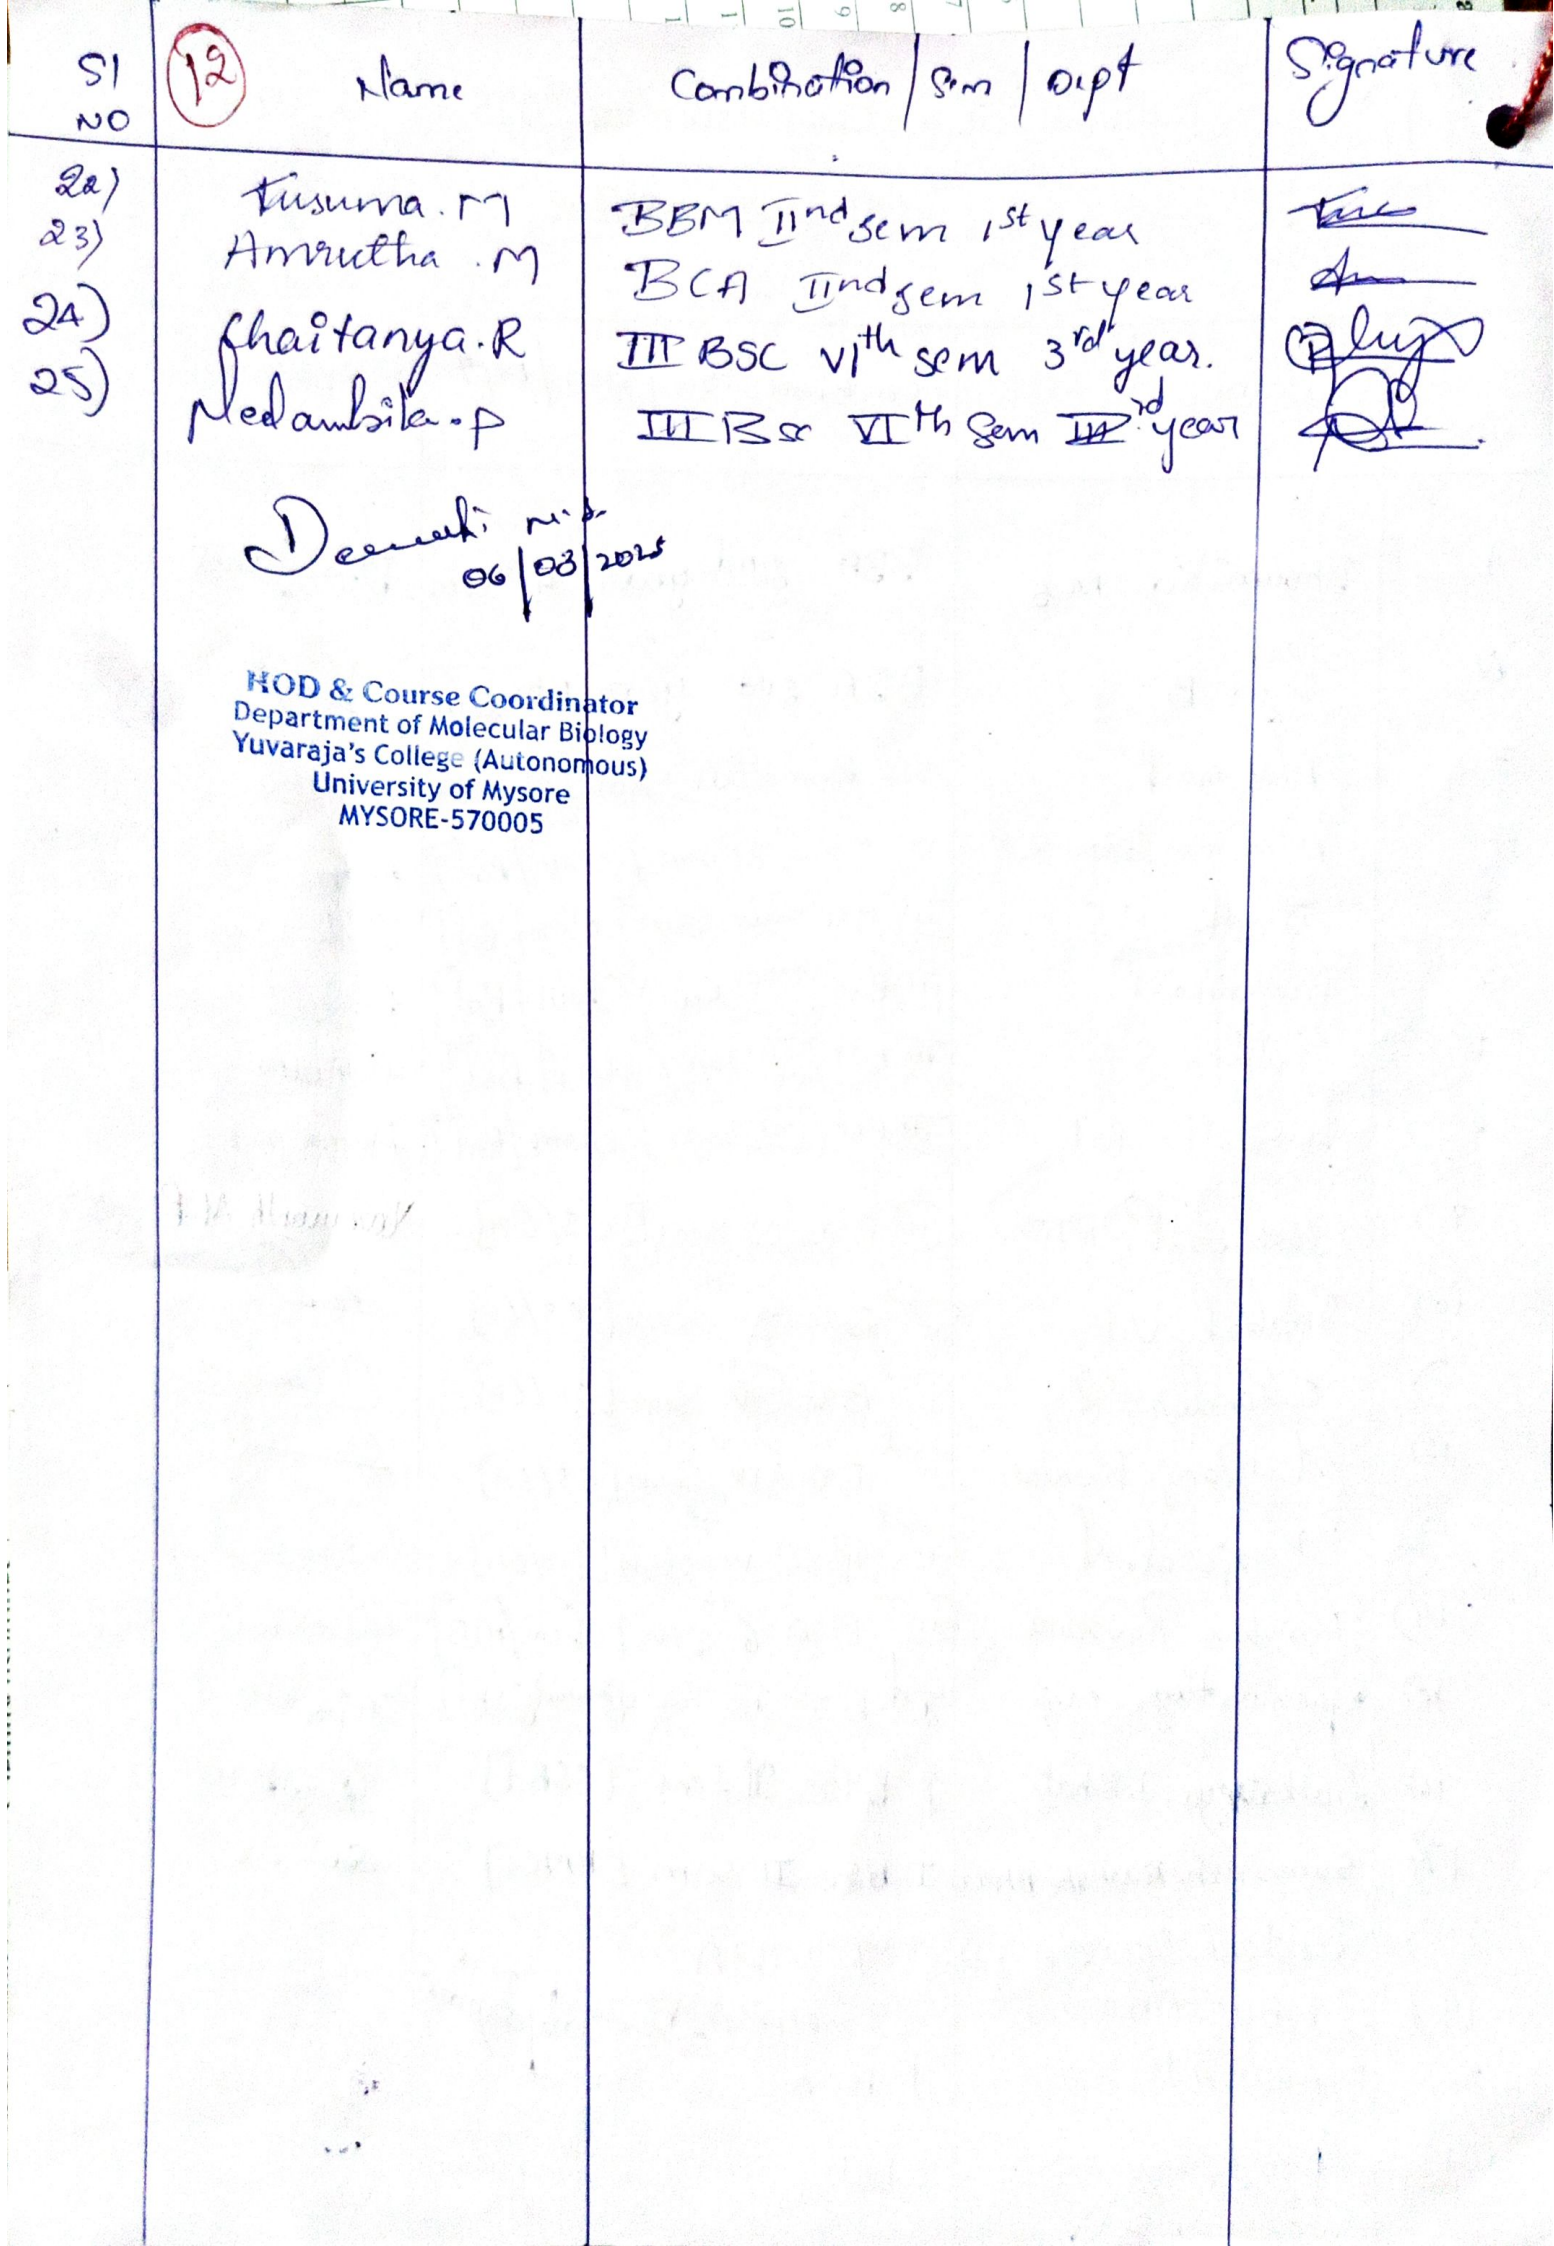 Sl NO 12 Name Combination / Sem / Dept Signature
22) Kusuma.M BBM IInd sem 1st year
23) Amrutha.M BCA IInd sem 1st year
24) Chaitanya.R III BSC VIth sem 3rd year.
25) III BSc VIth Sem year
06/03/2025
HOD & Course Coordinator
Department of Molecular Biology
Yuvaraja's College (Autonomous)
University of Mysore
MYSORE-570005